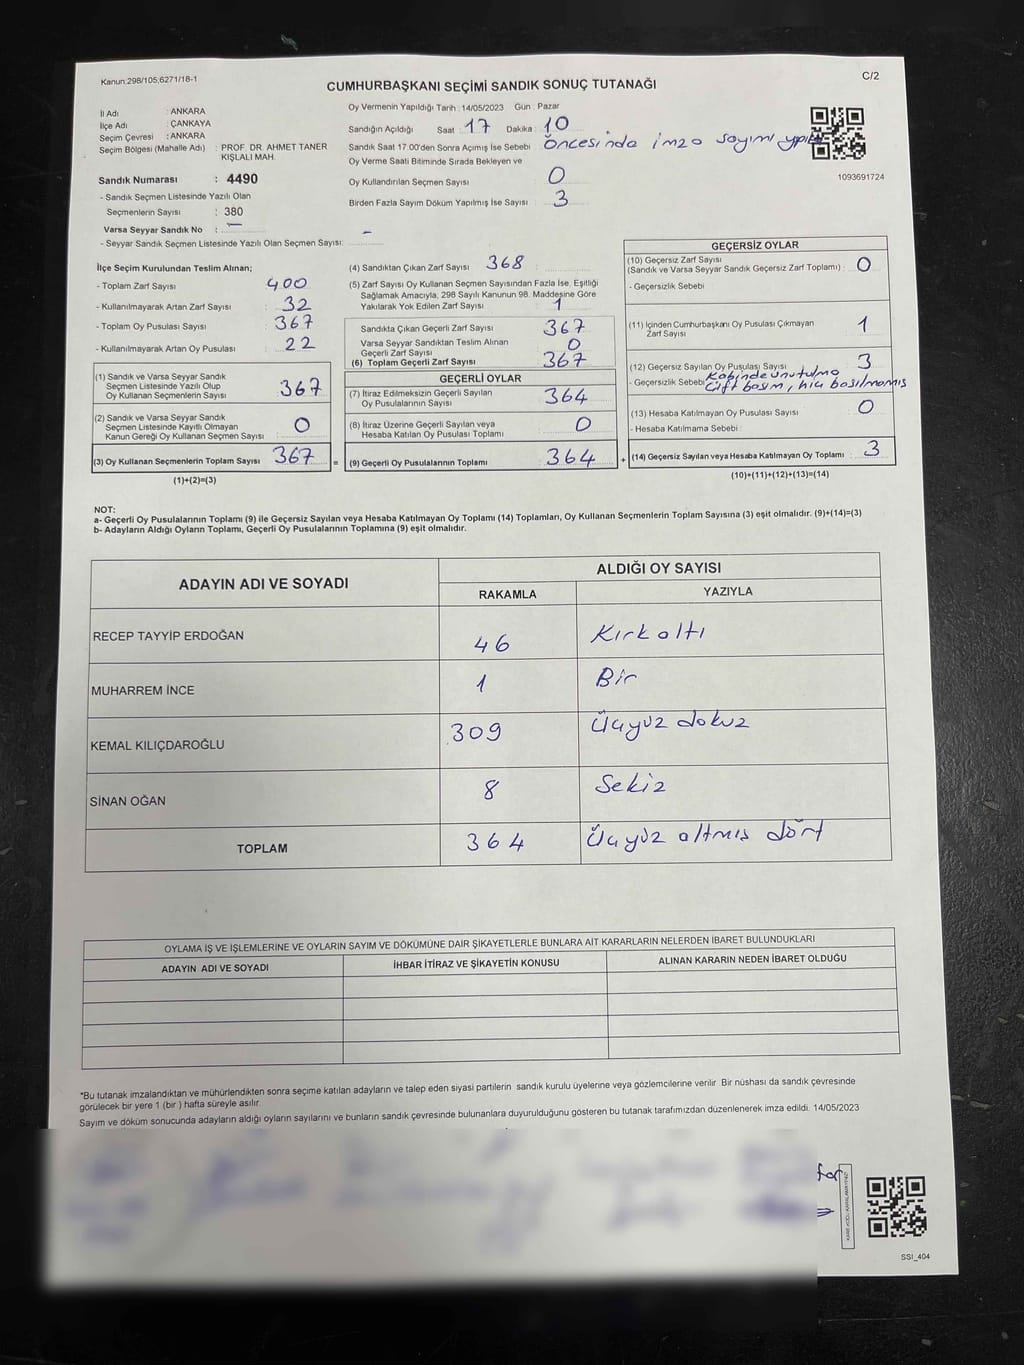 Kanun:298/105;6271/18-1
C/2
CUMHURBAŞKANI SEÇİMİ SANDIK SONUÇ TUTANAĞI
İl Adı : ANKARA
İlçe Adı : ÇANKAYA
Seçim Çevresi : ANKARA
Seçim Bölgesi (Mahalle Adı) : PROF. DR. AHMET TANER
KIŞLALI MAH.
Sandık Numarası : 4490
- Sandık Seçmen Listesinde Yazılı Olan
Seçmenlerin Sayısı : 380
Varsa Seyyar Sandık No : —
- Seyyar Sandık Seçmen Listesinde Yazılı Olan Seçmen Sayısı: -
Oy Vermenin Yapıldığı Tarih : 14/05/2023 Gün : Pazar
Sandığın Açıldığı Saat : 17 Dakika : 10
Sandık Saat 17.00'den Sonra Açımış İse Sebebi : Öncesinde imza sayımı
Oy Verme Saati Bitiminde Sırada Bekleyen ve
Oy Kullandırılan Seçmen Sayısı 0
Birden Fazla Sayım Döküm Yapılmış İse Sayısı : 3
1093691724
İlçe Seçim Kurulundan Teslim Alınan;
- Toplam Zarf Sayısı : 400
- Kullanılmayarak Artan Zarf Sayısı : 32
- Toplam Oy Pusulası Sayısı : 367
- Kullanılmayarak Artan Oy Pusulası : 22
(1) Sandık ve Varsa Seyyar Sandık
Seçmen Listesinde Yazılı Olup
Oy Kullanan Seçmenlerin Sayısı 367
(2) Sandık ve Varsa Seyyar Sandık
Seçmen Listesinde Kayıtlı Olmayan
Kanun Gereği Oy Kullanan Seçmen Sayısı 0
(3) Oy Kullanan Seçmenlerin Toplam Sayısı 367 =
(1)+(2)=(3)
(4) Sandıktan Çıkan Zarf Sayısı : 368
(5) Zarf Sayısı Oy Kullanan Seçmen Sayısından Fazla İse, Eşitliği
Sağlamak Amacıyla, 298 Sayılı Kanunun 98. Maddesine Göre
Yakılarak Yok Edilen Zarf Sayısı : 1
Sandıkta Çıkan Geçerli Zarf Sayısı 367
Varsa Seyyar Sandıktan Teslim Alınan
Geçerli Zarf Sayısı 0
(6) Toplam Geçerli Zarf Sayısı 367
GEÇERLİ OYLAR
(7) İtiraz Edilmeksizin Geçerli Sayılan
Oy Pusulalarının Sayısı 364
(8) İtiraz Üzerine Geçerli Sayılan veya
Hesaba Katılan Oy Pusulası Toplamı 0
(9) Geçerli Oy Pusulalarının Toplamı 364 +
GEÇERSİZ OYLAR
(10) Geçersiz Zarf Sayısı
(Sandık ve Varsa Seyyar Sandık Geçersiz Zarf Toplamı) : 0
- Geçersizlik Sebebi
(11) İçinden Cumhurbaşkanı Oy Pusulası Çıkmayan
Zarf Sayısı 1
(12) Geçersiz Sayılan Oy Pusulası Sayısı : 3
Kabinde unutulma
- Geçersizlik Sebebi Çift basım, hiç basılmamış
(13) Hesaba Katılmayan Oy Pusulası Sayısı : 0
- Hesaba Katılmama Sebebi
(14) Geçersiz Sayılan veya Hesaba Katılmayan Oy Toplamı : 3
(10)+(11)+(12)+(13)=(14)
NOT:
a- Geçerli Oy Pusulalarının Toplamı (9) ile Geçersiz Sayılan veya Hesaba Katılmayan Oy Toplamı (14) Toplamları, Oy Kullanan Seçmenlerin Toplam Sayısına (3) eşit olmalıdır. (9)+(14)=(3)
b- Adayların Aldığı Oyların Toplamı, Geçerli Oy Pusulalarının Toplamına (9) eşit olmalıdır.
ADAYIN ADI VE SOYADI
ALDIĞI OY SAYISI
RAKAMLA YAZIYLA
RECEP TAYYİP ERDOĞAN 46 Kırkaltı
MUHARREM İNCE 1 Bir
KEMAL KILIÇDAROĞLU 309 Üçyüz dokuz
SİNAN OĞAN 8 Sekiz
TOPLAM 364 Üçyüz altmış dört
OYLAMA İŞ VE İŞLEMLERİNE VE OYLARIN SAYIM VE DÖKÜMÜNE DAİR ŞİKAYETLERLE BUNLARA AİT KARARLARIN NELERDEN İBARET BULUNDUKLARI
ADAYIN ADI VE SOYADI İHBAR İTİRAZ VE ŞİKAYETİN KONUSU ALINAN KARARIN NEDEN İBARET OLDUĞU
*Bu tutanak imzalandıktan ve mühürlendikten sonra seçime katılan adayların ve talep eden siyasi partilerin sandık kurulu üyelerine veya gözlemcilerine verilir. Bir nüshası da sandık çevresinde
görülecek bir yere 1 (bir ) hafta süreyle asılır.
Sayım ve döküm sonucunda adayların aldığı oyların sayılarını ve bunların sandık çevresinde bulunanlara duyurulduğunu gösteren bu tutanak tarafımızdan düzenlenerek imza edildi. 14/05/2023
KARE KODU KARALAMAYINIZ
SSI_404